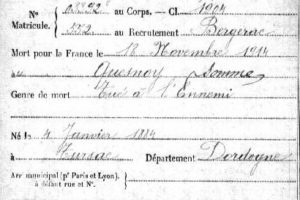 N° au Corps. — Cl. 1904
Matricule. 272 au Recrutement Bergerac
Mort pour la France le 18 Novembre 1914
à Quesnoy Somme
Genre de mort Tué à l'Ennemi
Né le 4 Janvier 1884
à Département Dordogne
Arr. municipal (pr Paris et Lyon),
à défaut rue et N°.